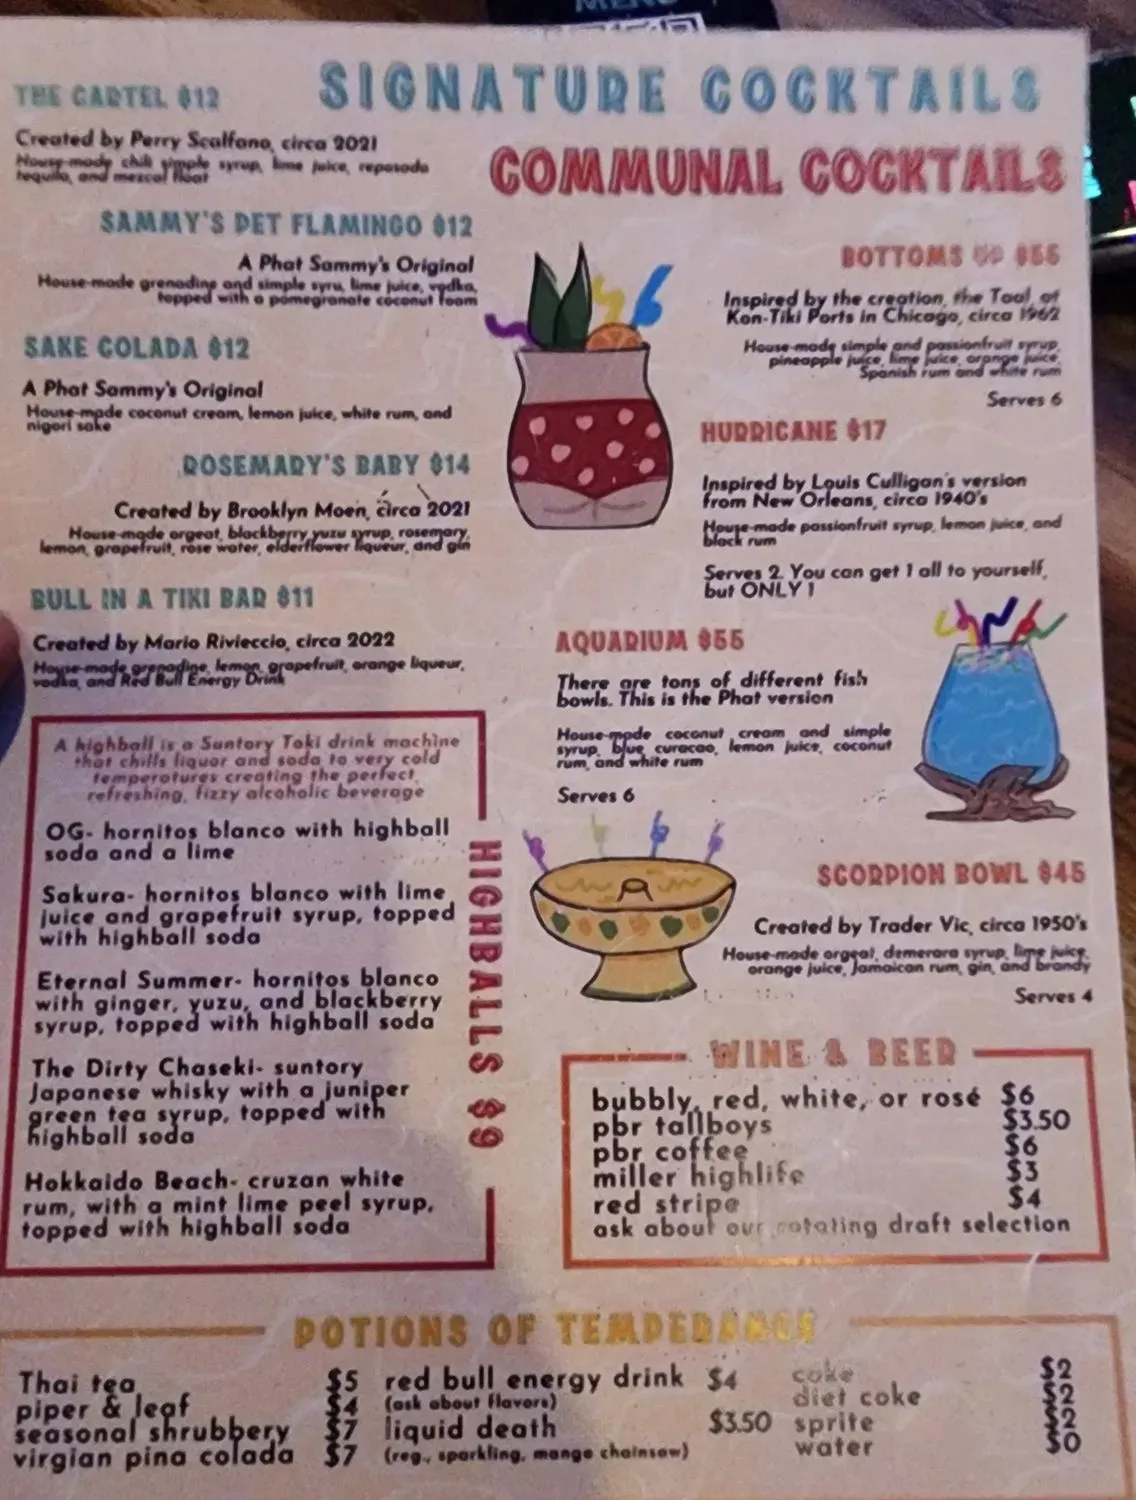 MENU
SIGNATURE COCKTAILS
THE CARTEL $12
Created by Perry Scalfano, circa 2021
House-made chili simple syrup, lime juice, reposado
tequila, and mezcal float
SAMMY'S PET FLAMINGO $12
A Phat Sammy's Original
House-made grenadine and simple syru, lime juice, vodka,
topped with a pomegranate coconut foam
SAKE COLADA $12
A Phat Sammy's Original
House-made coconut cream, lemon juice, white rum, and
nigori sake
ROSEMARY'S BABY $14
Created by Brooklyn Moen, circa 2021
House-made orgeat, blackberry yuzu syrup, rosemary,
lemon, grapefruit, rose water, elderflower liqueur, and gin
BULL IN A TIKI BAR $11
Created by Mario Rivieccio, circa 2022
House-made grenadine, lemon, grapefruit, orange liqueur,
vodka, and Red Bull Energy Drink
A highball is a Suntory Toki drink machine
that chills liquor and soda to very cold
temperatures creating the perfect,
refreshing, fizzy alcoholic beverage
HIGHBALLS $9
OG- hornitos blanco with highball
soda and a lime
Sakura- hornitos blanco with lime
juice and grapefruit syrup, topped
with highball soda
Eternal Summer- hornitos blanco
with ginger, yuzu, and blackberry
syrup, topped with highball soda
The Dirty Chaseki- suntory
Japanese whisky with a juniper
green tea syrup, topped with
highball soda
Hokkaido Beach- cruzan white
rum, with a mint lime peel syrup,
topped with highball soda
COMMUNAL COCKTAILS
BOTTOMS UP $55
Inspired by the creation, the Taal, at
Kon-Tiki Ports in Chicago, circa 1962
House-made simple and passionfruit syrup,
pineapple juice, lime juice, orange juice,
Spanish rum and white rum
Serves 6
HURRICANE $17
Inspired by Louis Culligan's version
from New Orleans, circa 1940's
House-made passionfruit syrup, lemon juice, and
black rum
Serves 2. You can get 1 all to yourself,
but ONLY 1
AQUARIUM $55
There are tons of different fish
bowls. This is the Phat version
House-made coconut cream and simple
syrup, blue curacao, lemon juice, coconut
rum, and white rum
Serves 6
SCORPION BOWL $45
Created by Trader Vic, circa 1950's
House-made orgeat, demerara syrup, lime juice,
orange juice, Jamaican rum, gin, and brandy
Serves 4
WINE & BEER
bubbly, red, white, or rosé $6
pbr tallboys $3.50
pbr coffee $6
miller highlife $3
red stripe $4
ask about our rotating draft selection
POTIONS OF TEMPERANCE
Thai tea $5
piper & leaf $4
seasonal shrubbery $7
virgian pina colada $7
red bull energy drink $4
(ask about flavors)
liquid death $3.50
(reg., sparkling, mango chainsaw)
coke $2
diet coke $2
sprite $2
water $0